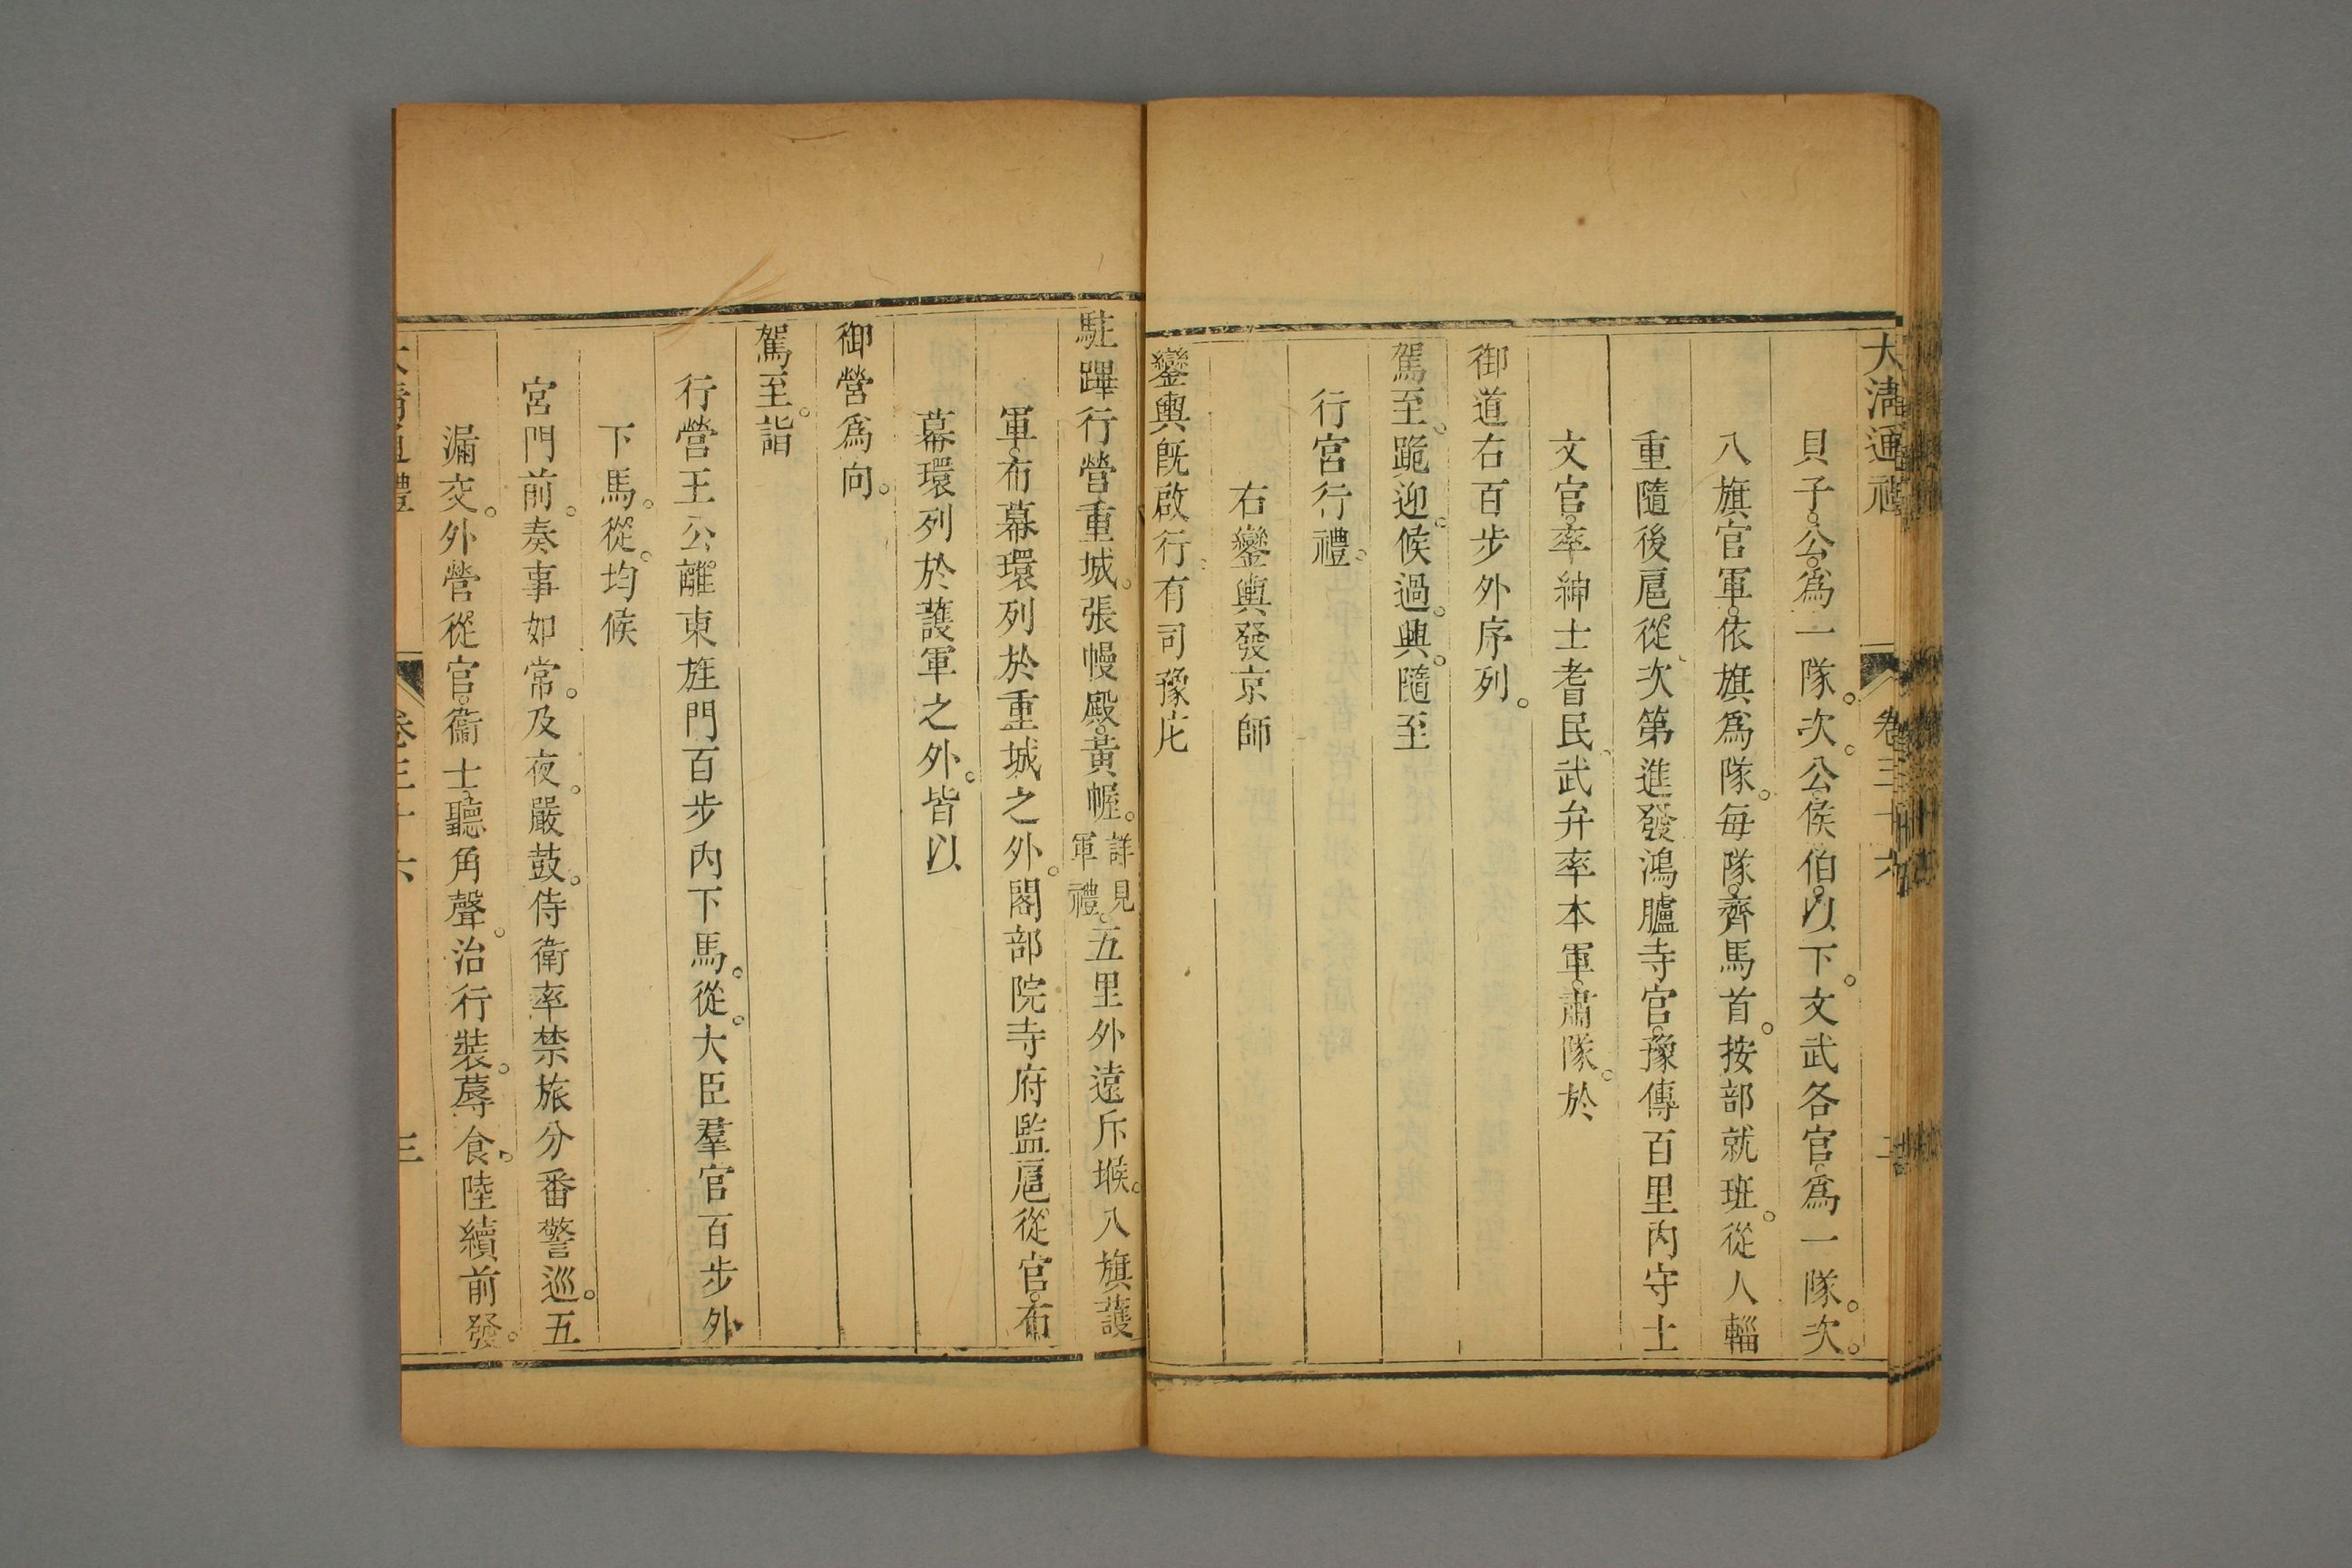 大淸通禮 卷三十六 二
貝子。公。爲一隊。次。公。侯。伯。以下。文武各官。爲一隊。次。
八旗官軍。依旗爲隊。每隊。齊馬首。按部就班。從人輜
重隨後扈從、次第進發鴻臚寺官。豫傳百里內守土
文官。率紳士耆民、武弁率本軍。肅隊。於
御道右百步外序列。
駕至。跪迎。候過。興。隨至
行宮行禮。
右鑾輿發京師
鑾輿旣啟行。有司豫庀
駐蹕行營重城。張幔殿。黃幄。詳見軍禮。五里外遠斥堠。八旗護
軍。布幕環列於重城之外。閣部院寺府監扈從官。布
幕環列於護軍之外。皆以
御營爲向。
駕至。詣
行營王公離東旌門百步內下馬。從。大臣羣官百步外
下馬。從。均候
宮門前。奏事如常。及夜。嚴鼓。侍衛率禁旅分番警巡。五
漏交。外營從官。衞士。聽角聲。治行裝。蓐食。陸續前發。
大清通禮 卷三十六 三